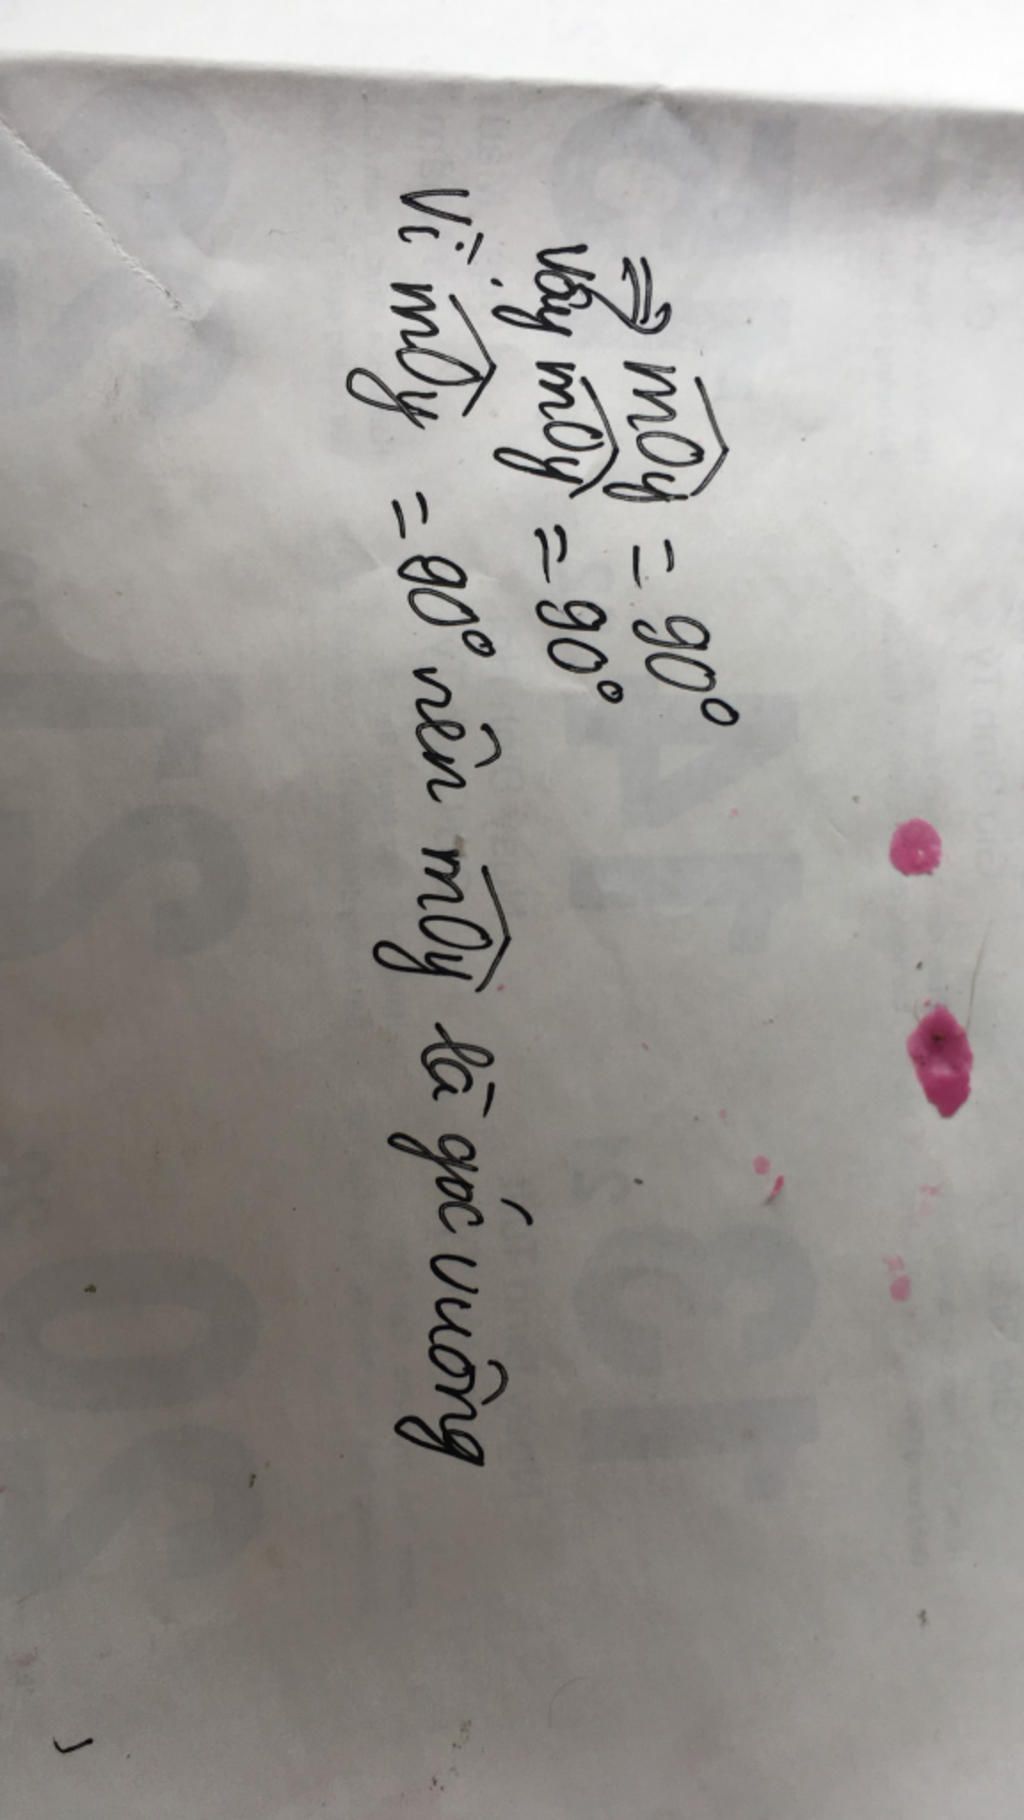 => \widehat{mOy} = 90°
Vậy \widehat{mOy} = 90°
Vì \widehat{mOy} = 90° nên \widehat{mOy} là góc vuông